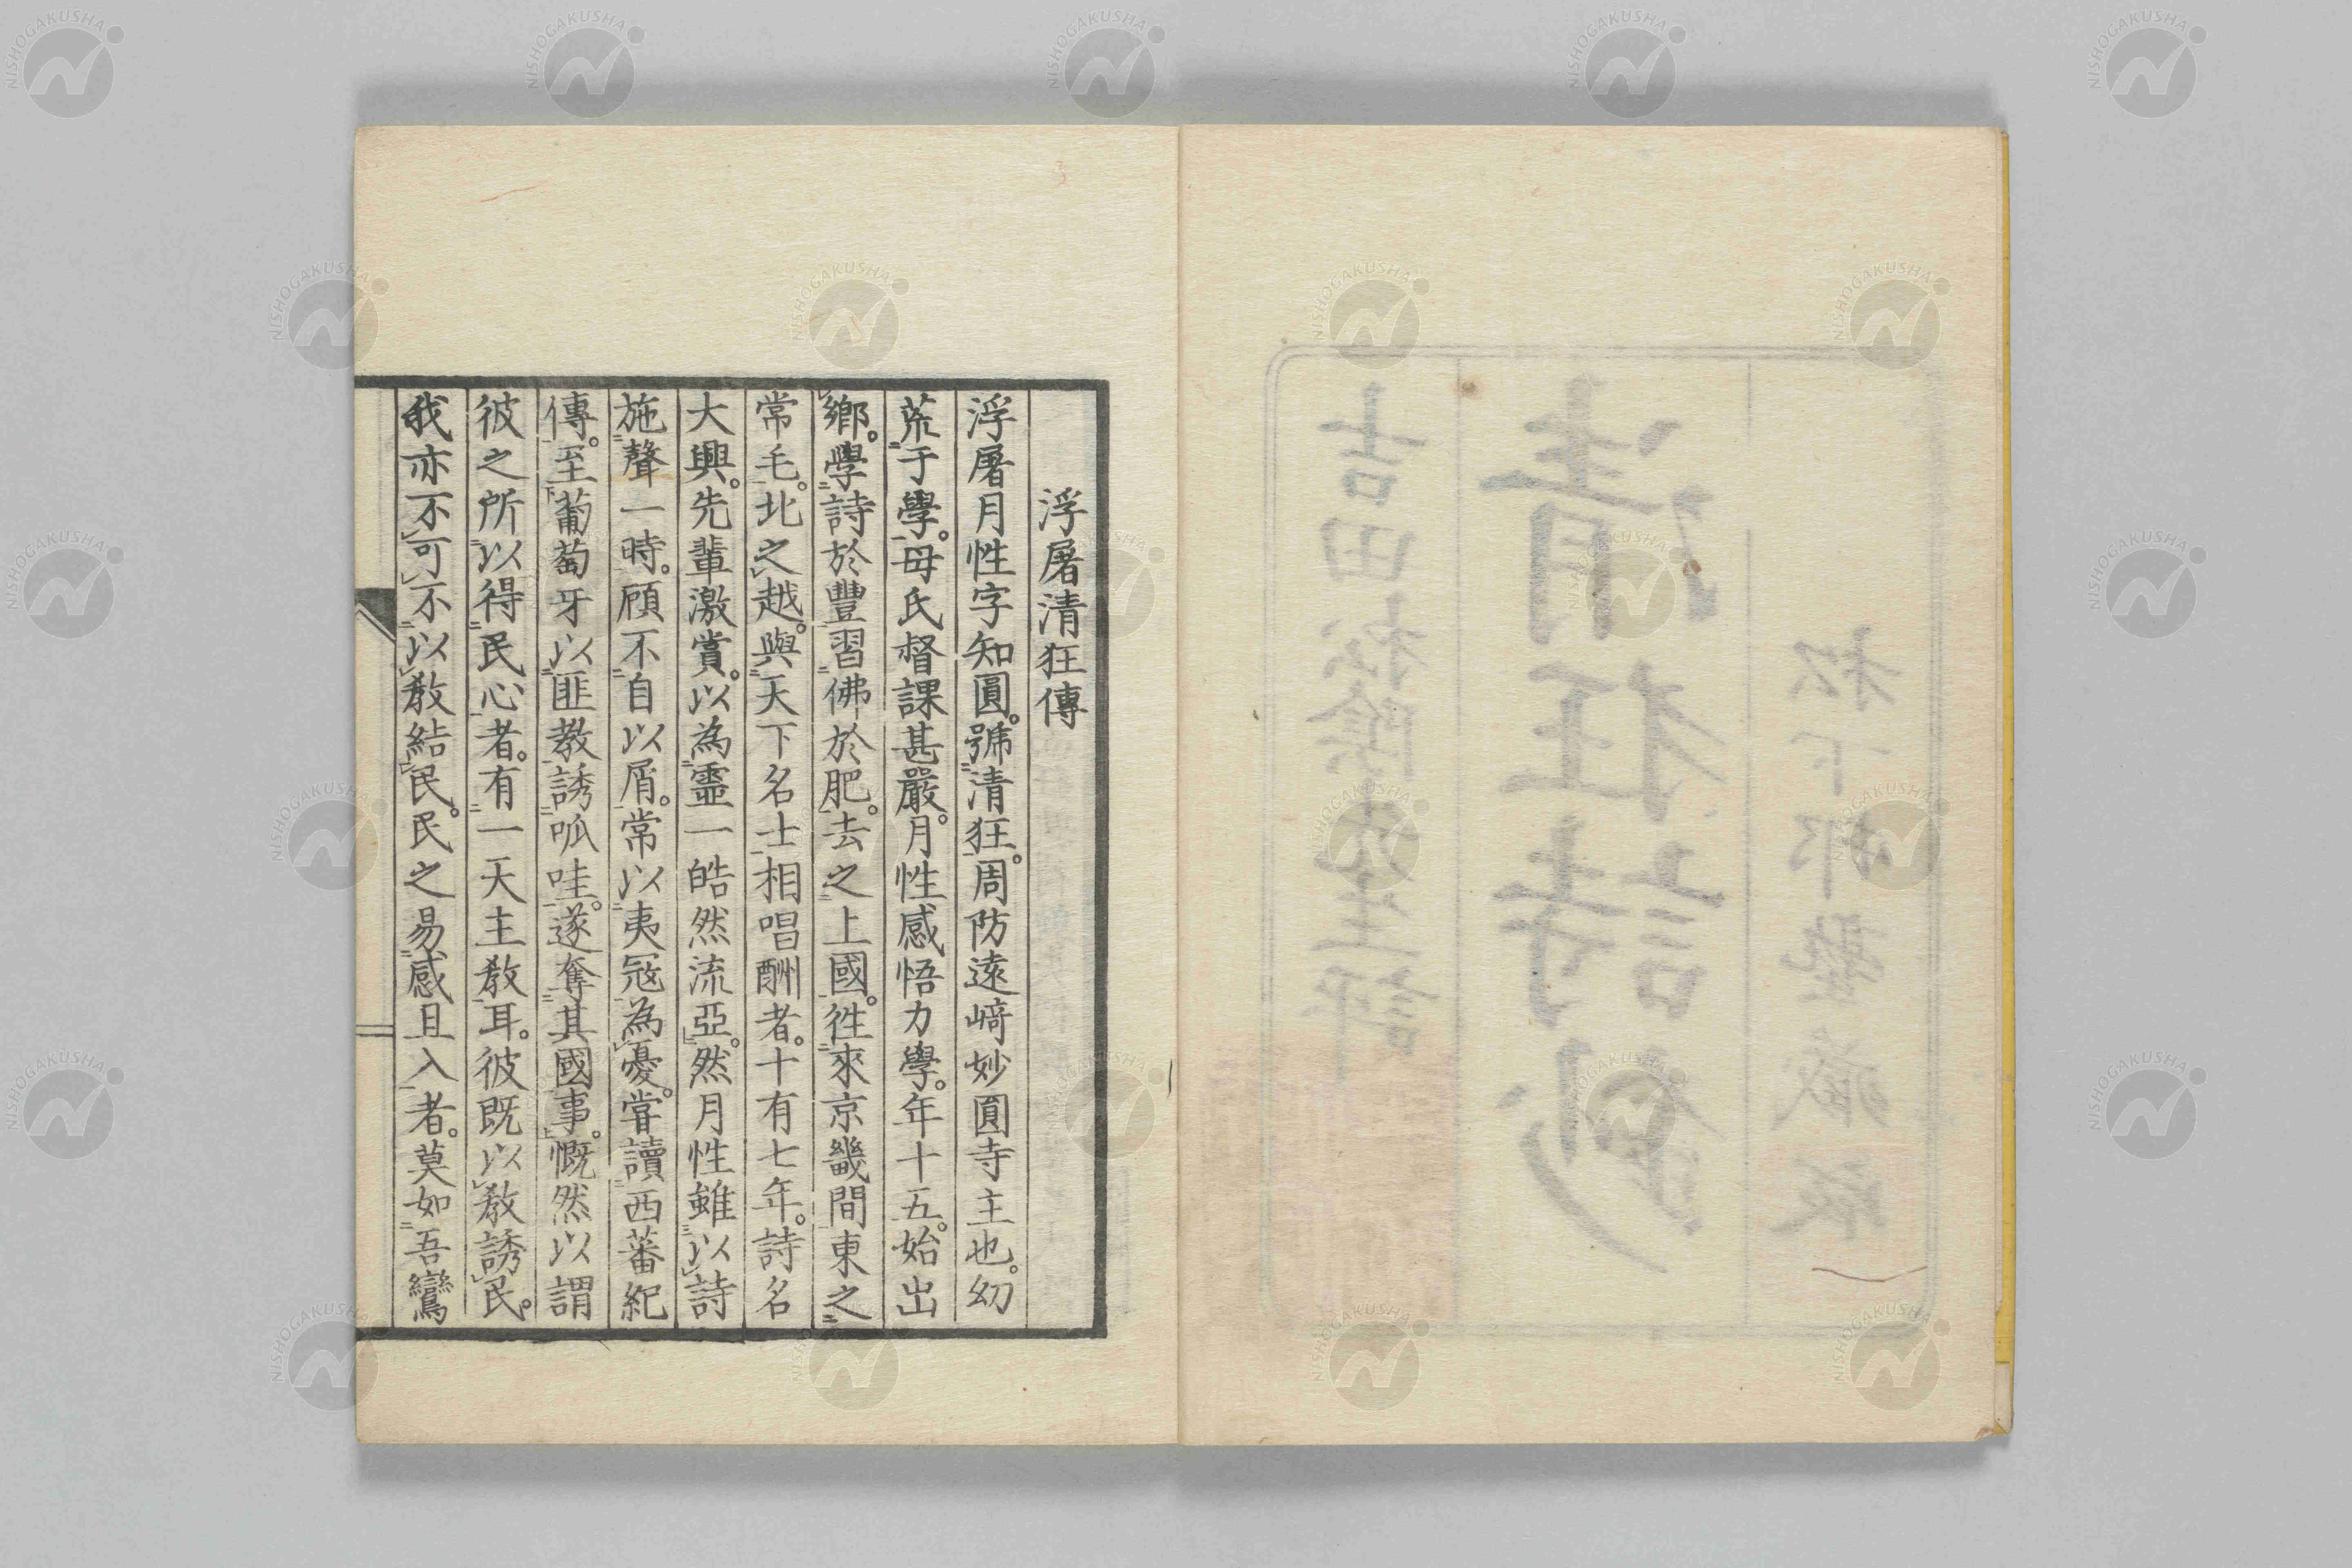 浮屠清狂傳
浮屠月性字知圓。號清狂。周防遠﨑妙圓寺主也。幼
荒于學。母氏督課甚嚴。月性感悟力學。年十五。始出
鄉。學詩於豐習佛於肥。去之上國。徃來京畿間東之
常毛。北之越。與天下名士相唱酬者。十有七年。詩名
大興。先輩激賞。以為靈一皓然流亞。然月性雖以詩
施聲一時。顧不自以屑。常以夷冦為憂。甞讀西蕃紀
傳。至葡萄牙以匪教誘呱哇。遂奪其國事。慨然以謂
彼之所以得民心者。有一天主教耳。彼既以教誘民。
我亦不可不以教結民。民之易感且入者。莫如吾鸞
松下邨塾藏版
清狂詩鈔
吉田松陰先生評
NISHOGAKUSHA